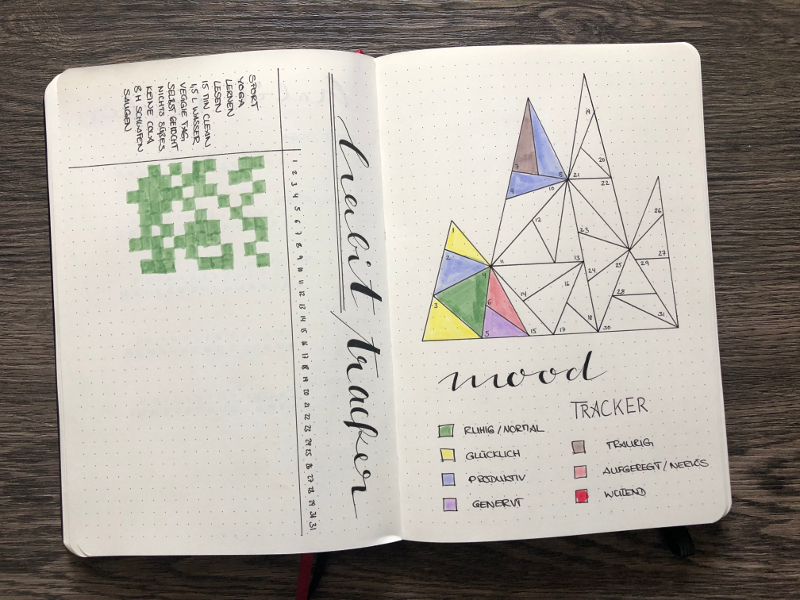 habit tracker
1 2 3 4 5 6 7 8 9 10 11 12 13 14 15 16 17 18 19 20 21 22 23 24 25 26 27 28 29 30 31
SPORT
YOGA
LERNEN
LESEN
15 MIN CLEAN
1,5 L WASSER
VEGGIE TAG
SELBST GEKOCHT
NICHTS SÜßES
KEINE COLA
8 H SCHLAFEN
SAUGEN
19
20
21
22
10
12
26
1
23
2
13
25
27
24
29
3
6
14
16
28
5
15
17
18
30
31
mood
TRACKER
RUHIG / NORMAL
GLÜCKLICH
PRODUKTIV
GENERVT
TRAURIG
AUFGEREGT / NERVÖS
WÜTEND